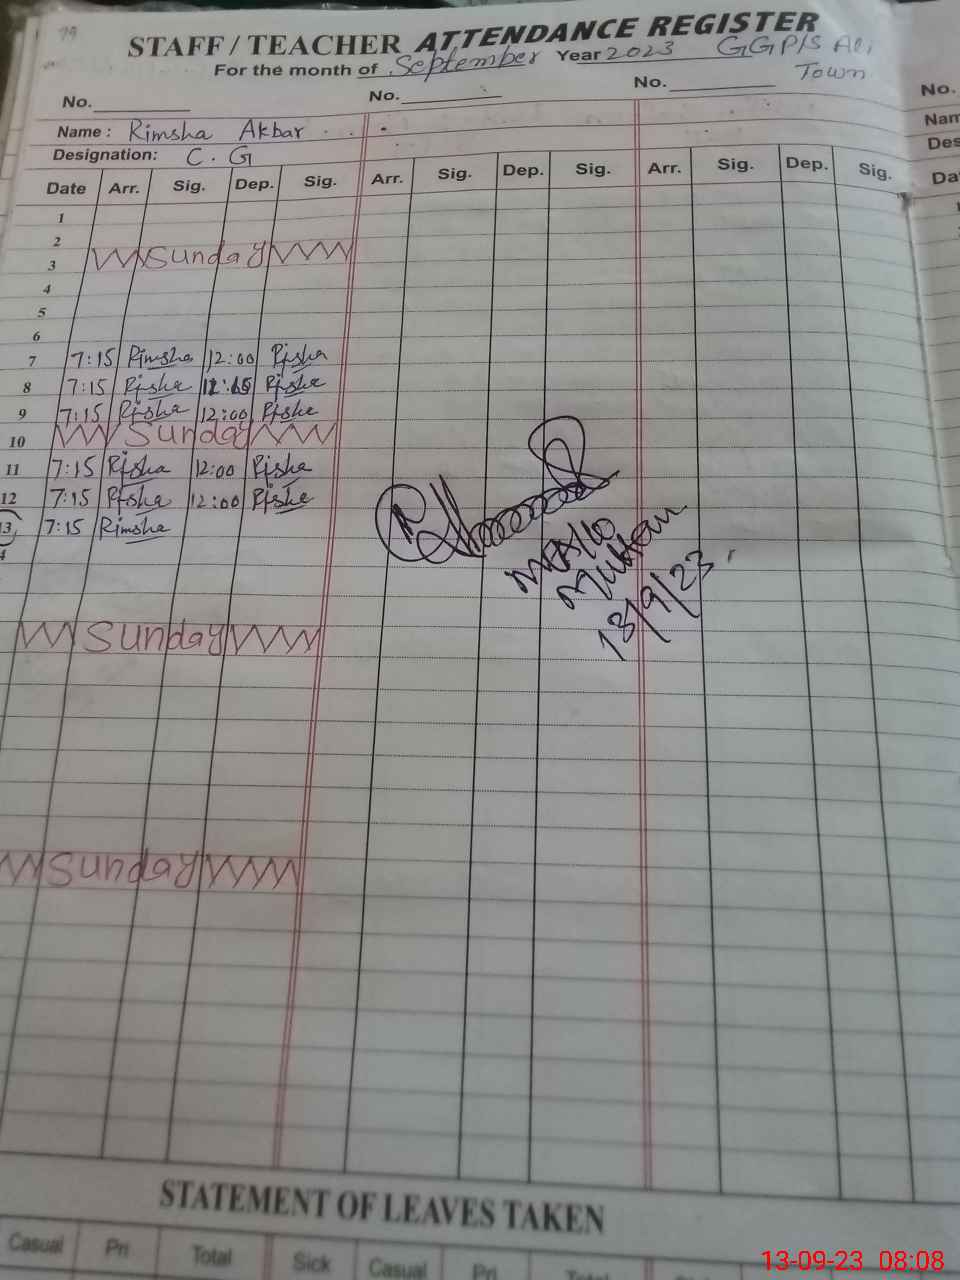 79
STAFF / TEACHER ATTENDANCE REGISTER
For the month of September Year 2023 GGP/S Ali
Town
No. No. No. No.
Name : Rimsha Akbar Nam
Designation: C. G Des
Date Arr. Sig. Dep. Sig. Arr. Sig. Dep. Sig. Arr. Sig. Dep. Sig. Da
1
2
3 Sunday
4
5
6
7 7:15 Rimsha 12:00 Risha
8 7:15 Risha Risha
9 7:15 Risha 12:00 Risha
10 Sunday
11 7:15 Risha 12:00 Risha
12 7:15 Risha 12:00 Risha
13 7:15 Rimsha
4
MEA/10
Multan
13/9/23
Sunday
Sunday
STATEMENT OF LEAVES TAKEN
Casual Pri Total Sick Casual Pri Total
13-09-23 08:08